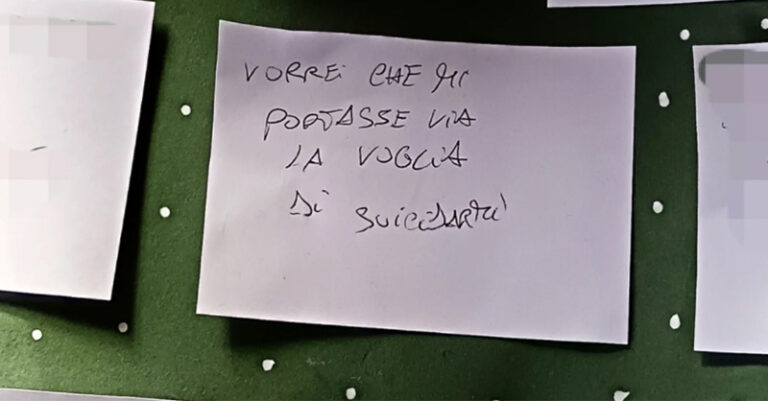 VORREI CHE MI
PORTASSE VIA
LA VOGLIA
DI SUICIDARMI